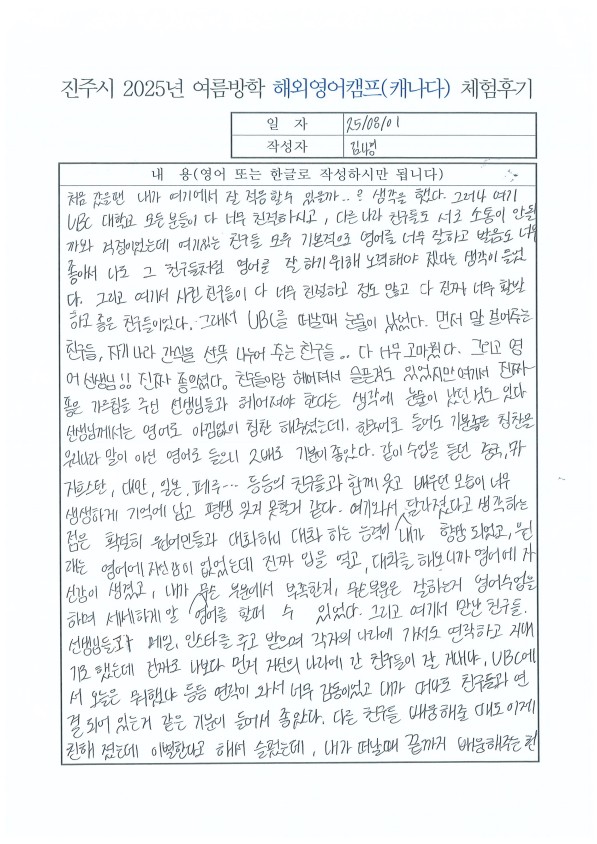 진주시 2025년 여름방학 해외영어캠프(캐나다) 체험후기
일 자 25/08/01
작성자
내 용(영어 또는 한글로 작성하시면 됩니다)
처음 갔을땐 내가 여기에서 잘 적응할수 있을까..? 생각을 했다. 그러나 여기
UBC 대학교 모든분들이 다 너무 친절하시고, 다른나라 친구들도 서로 소통이 안될
까봐 걱정이었는데 여기있는 친구들 모두 기본적으로 영어를 너무 잘하고 발음도 너무
좋아서 나도 그 친구들처럼 영어를 잘 하기위해 노력해야 겠다는 생각이 들었
다. 그리고 여기서 사귄 친구들이 다 너무 친절하고 정도 많고 다 진짜 너무 활발
하고 좋은 친구들이었다. 그래서 UBC를 떠날때 눈물이 났었다. 먼저 말 걸어주는
친구들, 자기 나라 간식을 선뜻 나누어 주는 친구들.. 다 너무 고마웠다. 그리고 영
어 선생님!! 진짜 좋았었다. 친구들이랑 헤어져서 슬픈것도 있었지만 여기서 진짜
좋은 가르침을 주신 선생님들과 헤어져야 한다는 생각에 눈물이 났던 것도 있다
선생님께서는 영어로 아낌없이 칭찬 해주셨는데. 한국어로 들어도 기분좋은 칭찬은
우리나라 말이 아닌 영어로 들으니 2배로 기분이 좋았다. 같이 수업을 듣던 중국, 카
자흐스탄, 대만, 일본, 페루… 등등의 친구들과 함께 웃고 배우던 모습이 너무
생생하게 기억에 남고 평생 잊지 못할거 같다. 여기와서 달라졌다고 생각하는
점은 확실히 원어민들과 대화하니 대화 하는 능력이 내가 향상 되었고, 원
래는 영어에 자신감이 없었는데 진짜 입을 열고, 대화를 해보니까 영어에 자
신감이 생겼고, 내가 무슨 부분에서 부족한지, 무슨부분은 잘하는지 영어수업을
하며 세세하게 알 영어를 할 수 있었다. 그리고 여기서 만난 친구들.
선생님들과 메일, 인스타를 주고 받으며 각자의 나라에 가서도 연락하고 지내
기로 했는데 진짜로 나보다 먼저 자신의 나라에 간 친구들이 잘 지내냐, UBC에
서 오늘은 뭐했냐 등등 연락이 와서 너무 감동이었고 내가 떠나도 친구들과 연
결 되어 있는거 같은 기분이 들어서 좋았다. 다른 친구들 배웅해줄 때도 이제
친해 졌는데 이별한다고 해서 슬펐는데, 내가 떠날때 끝까지 배웅해주는 친